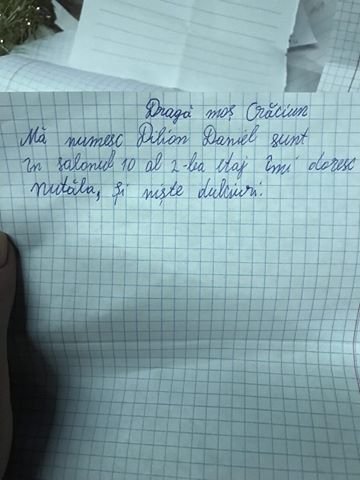 Dragă moș Crăciun
Mă numesc Dilion Daniel sunt
în salonul 10 al 2-lea etaj Îmi doresc
nutăla, și niște dulciuri.